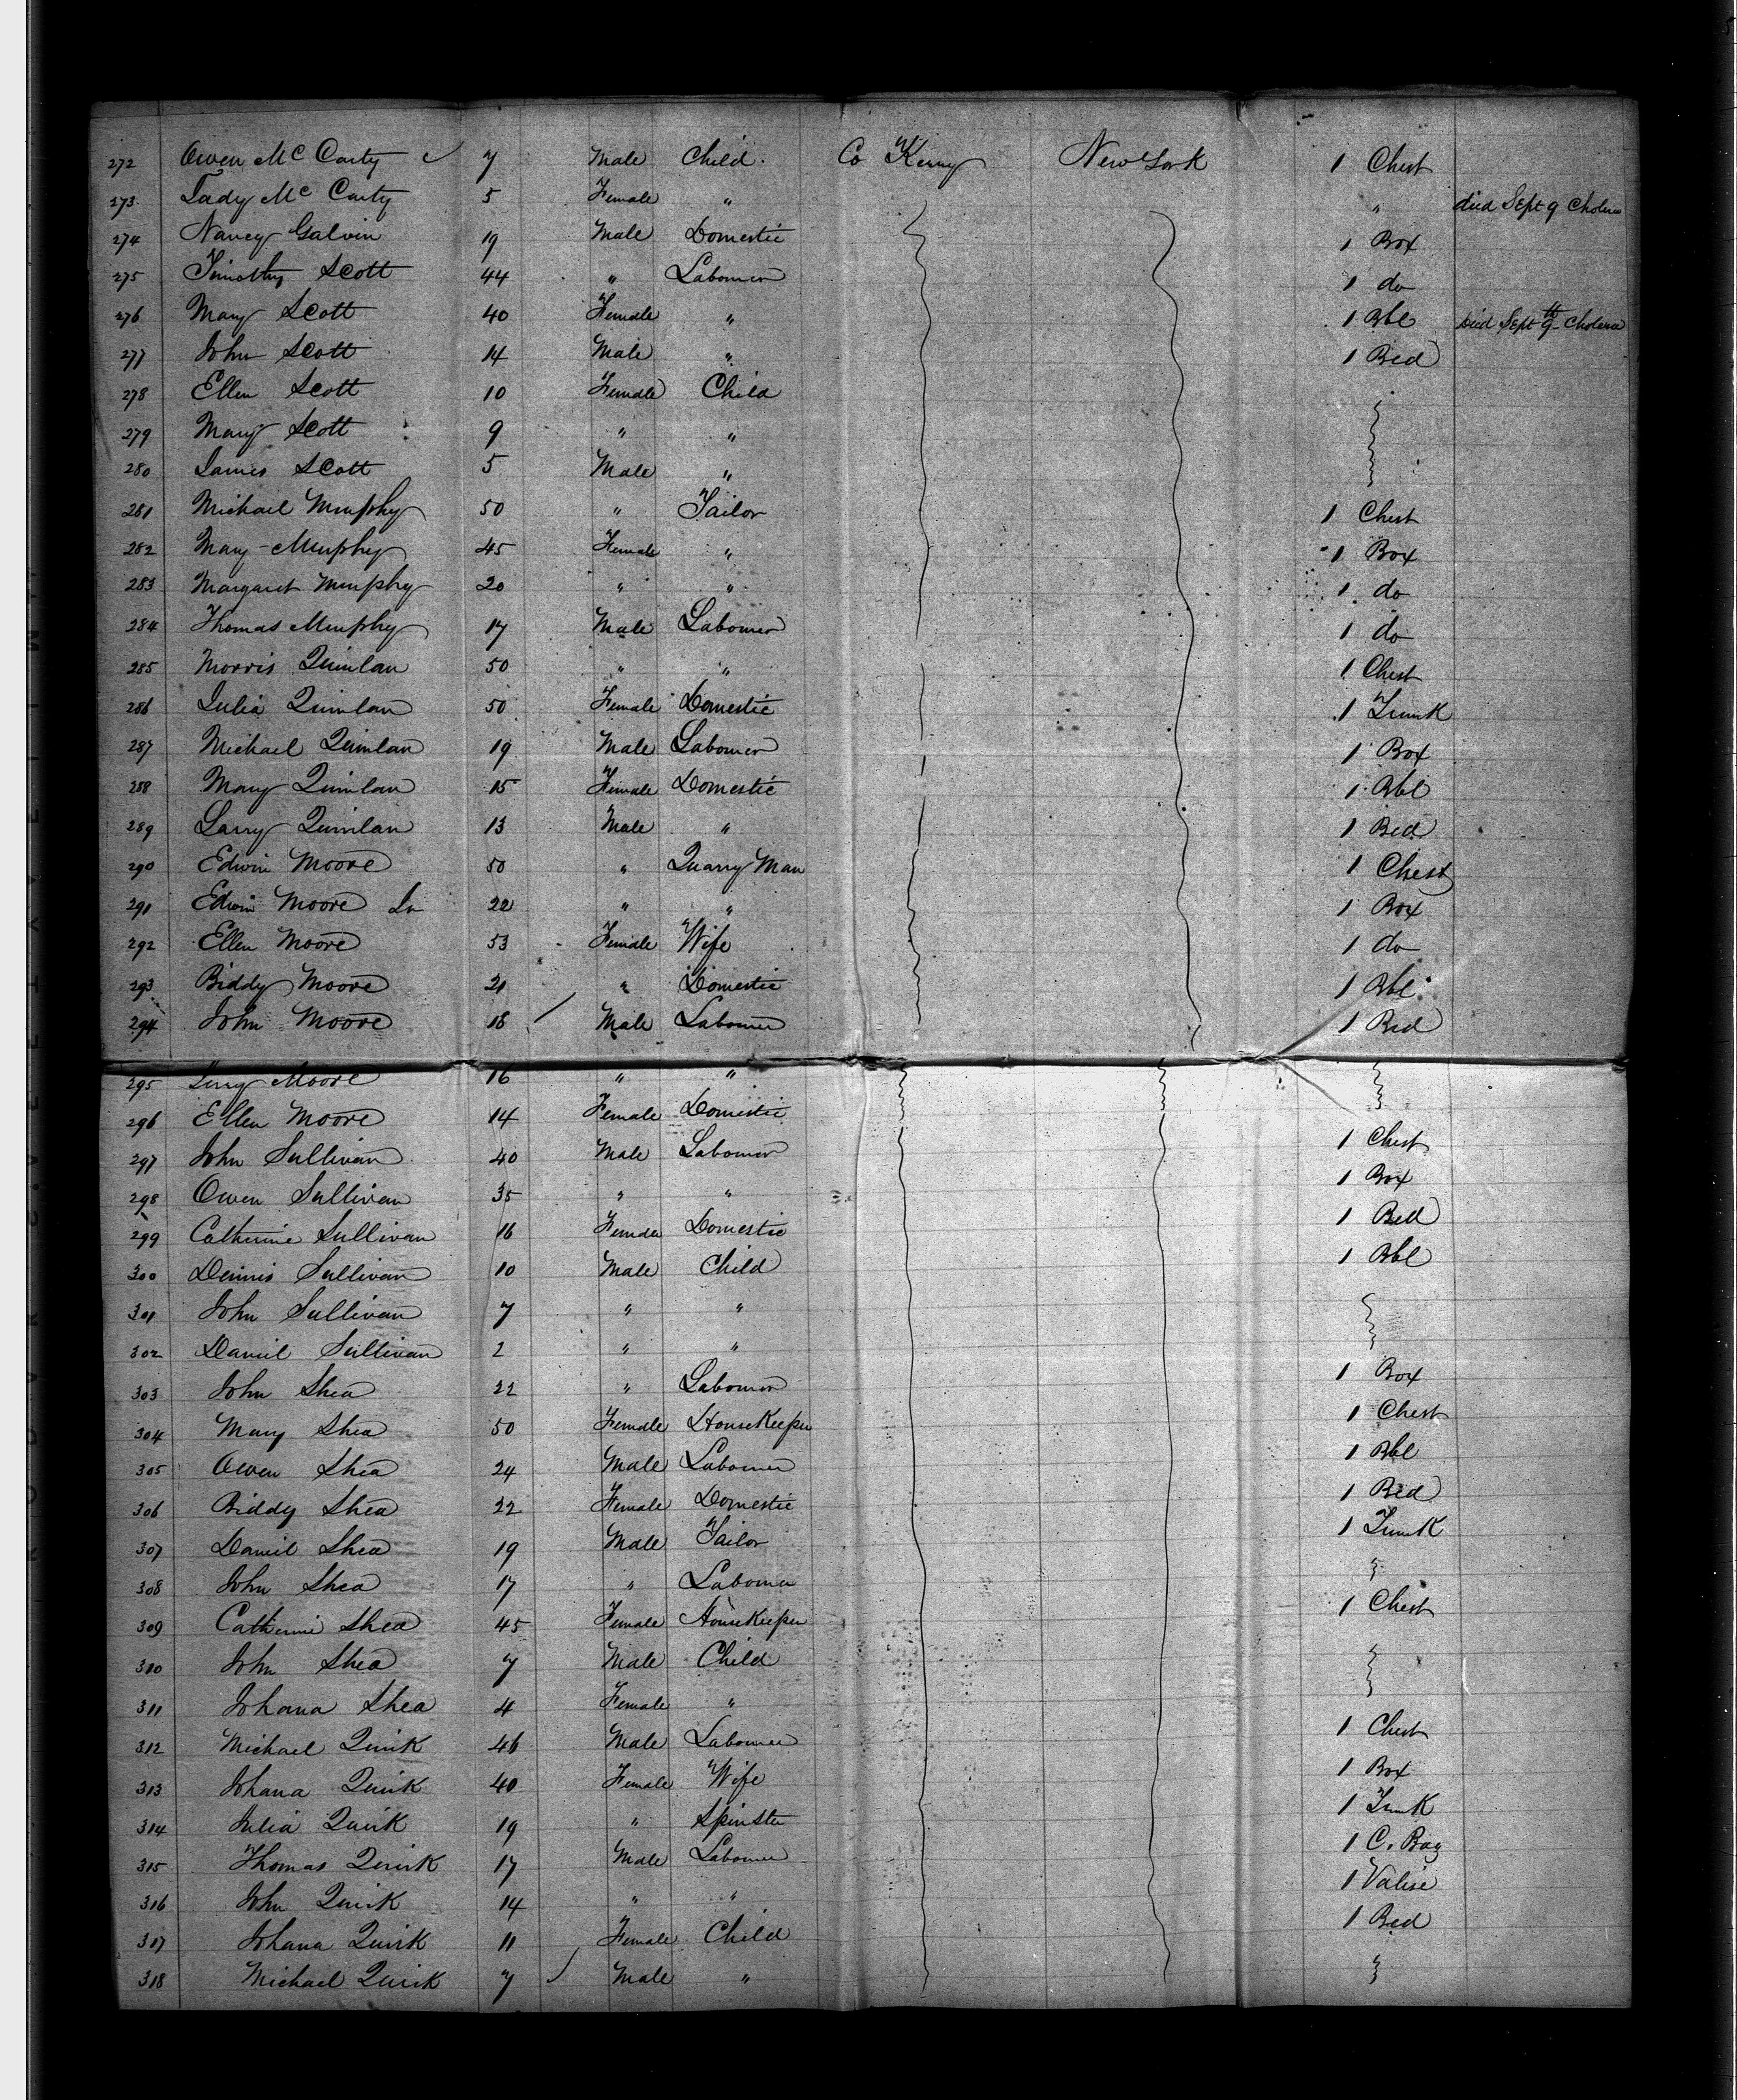 272 Owen Mc Carty 7 Male Child. Co Kerry New York 1 Chest
273 Tady Mc Carty 5 Female " " died Sept 9 Cholera
274 Nancy Galvin 19 Male Domestic 1 Box
275 Timothy Scott 44 " Labourer 1 do
276 Mary Scott 40 Female " 1 Bbl Died Sept 9th Cholera
277 John Scott 14 Male " 1 Bed
278 Ellen Scott 10 Female Child
279 Mary Scott 9 " "
280 James Scott 5 Male "
281 Michael Murphy 50 " Tailor 1 Chest
282 Mary Murphy 45 Female " 1 Box
283 Margaret Murphy 20 " " 1 do
284 Thomas Murphy 17 Male Labourer 1 do
285 Morris Quinlan 50 " " 1 Chest
286 Julia Quinlan 50 Female Domestic 1 Trunk
287 Michael Quinlan 19 Male Labourer 1 Box
288 Mary Quinlan 15 Female Domestic 1 Bbl
289 Larry Quinlan 13 Male " 1 Bed
290 Edwin Moore 50 " Quarry Man 1 Chest
291 Edwin Moore Jr 22 " " 1 Box
292 Ellen Moore 53 Female Wife 1 do
293 Biddy Moore 21 " Domestic 1 Bbl
294 John Moore 18 Male Labourer 1 Bed
295 Moore 16 " "
296 Ellen Moore 14 Female Domestic
297 John Sullivan 40 Male Labourer 1 Chest
298 Owen Sullivan 35 " " 1 Box
299 Catherine Sullivan 16 Female Domestic 1 Bed
300 Dennis Sullivan 10 Male Child 1 Bbl
301 John Sullivan 7 " "
302 Daniel Sullivan 2 " "
303 John Shea 22 " Labourer 1 Box
304 Mary Shea 50 Female HouseKeeper 1 Chest
305 Owen Shea 24 Male Labourer 1 Bbl
306 Biddy Shea 22 Female Domestic 1 Bed
307 Daniel Shea 19 Male Tailor 1 Trunk
308 John Shea 17 " Labourer
309 Catherine Shea 45 Female HouseKeeper 1 Chest
310 John Shea 7 Male Child
311 Johana Shea 4 Female "
312 Michael Quirk 46 Male Labourer 1 Chest
313 Johana Quirk 40 Female Wife 1 Box
314 Julia Quirk 19 " Spinster 1 Trunk
315 Thomas Quirk 17 Male Labourer 1 C. Bag
316 John Quirk 14 " " 1 Valise
317 Johana Quirk 11 Female Child 1 Bed
318 Michael Quirk 7 Male "